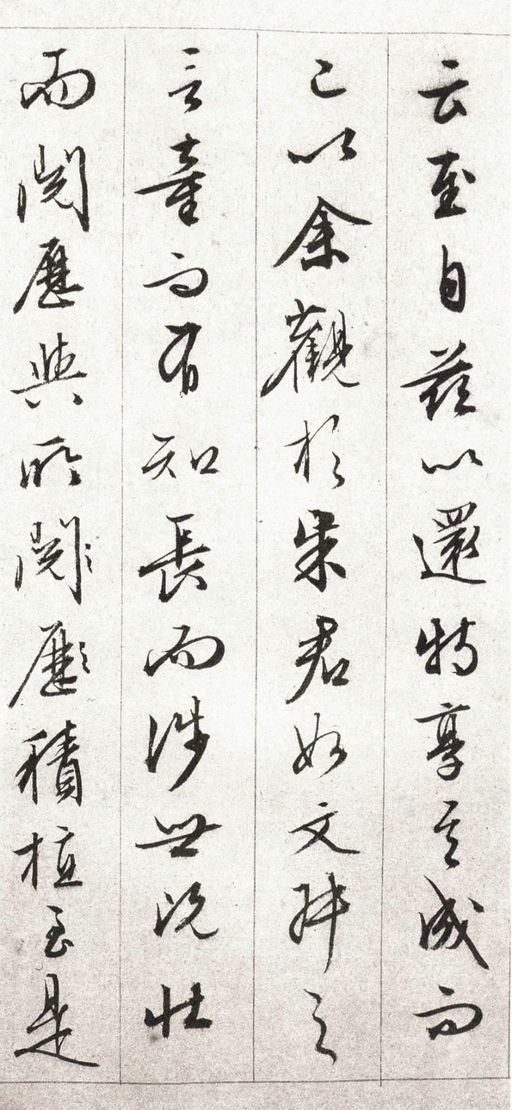 云至自茲以還特享其成而
已以余觀於朱君如文醉之
言童而有知長而涉世況壯
而閱歷與所閱歷積植至是